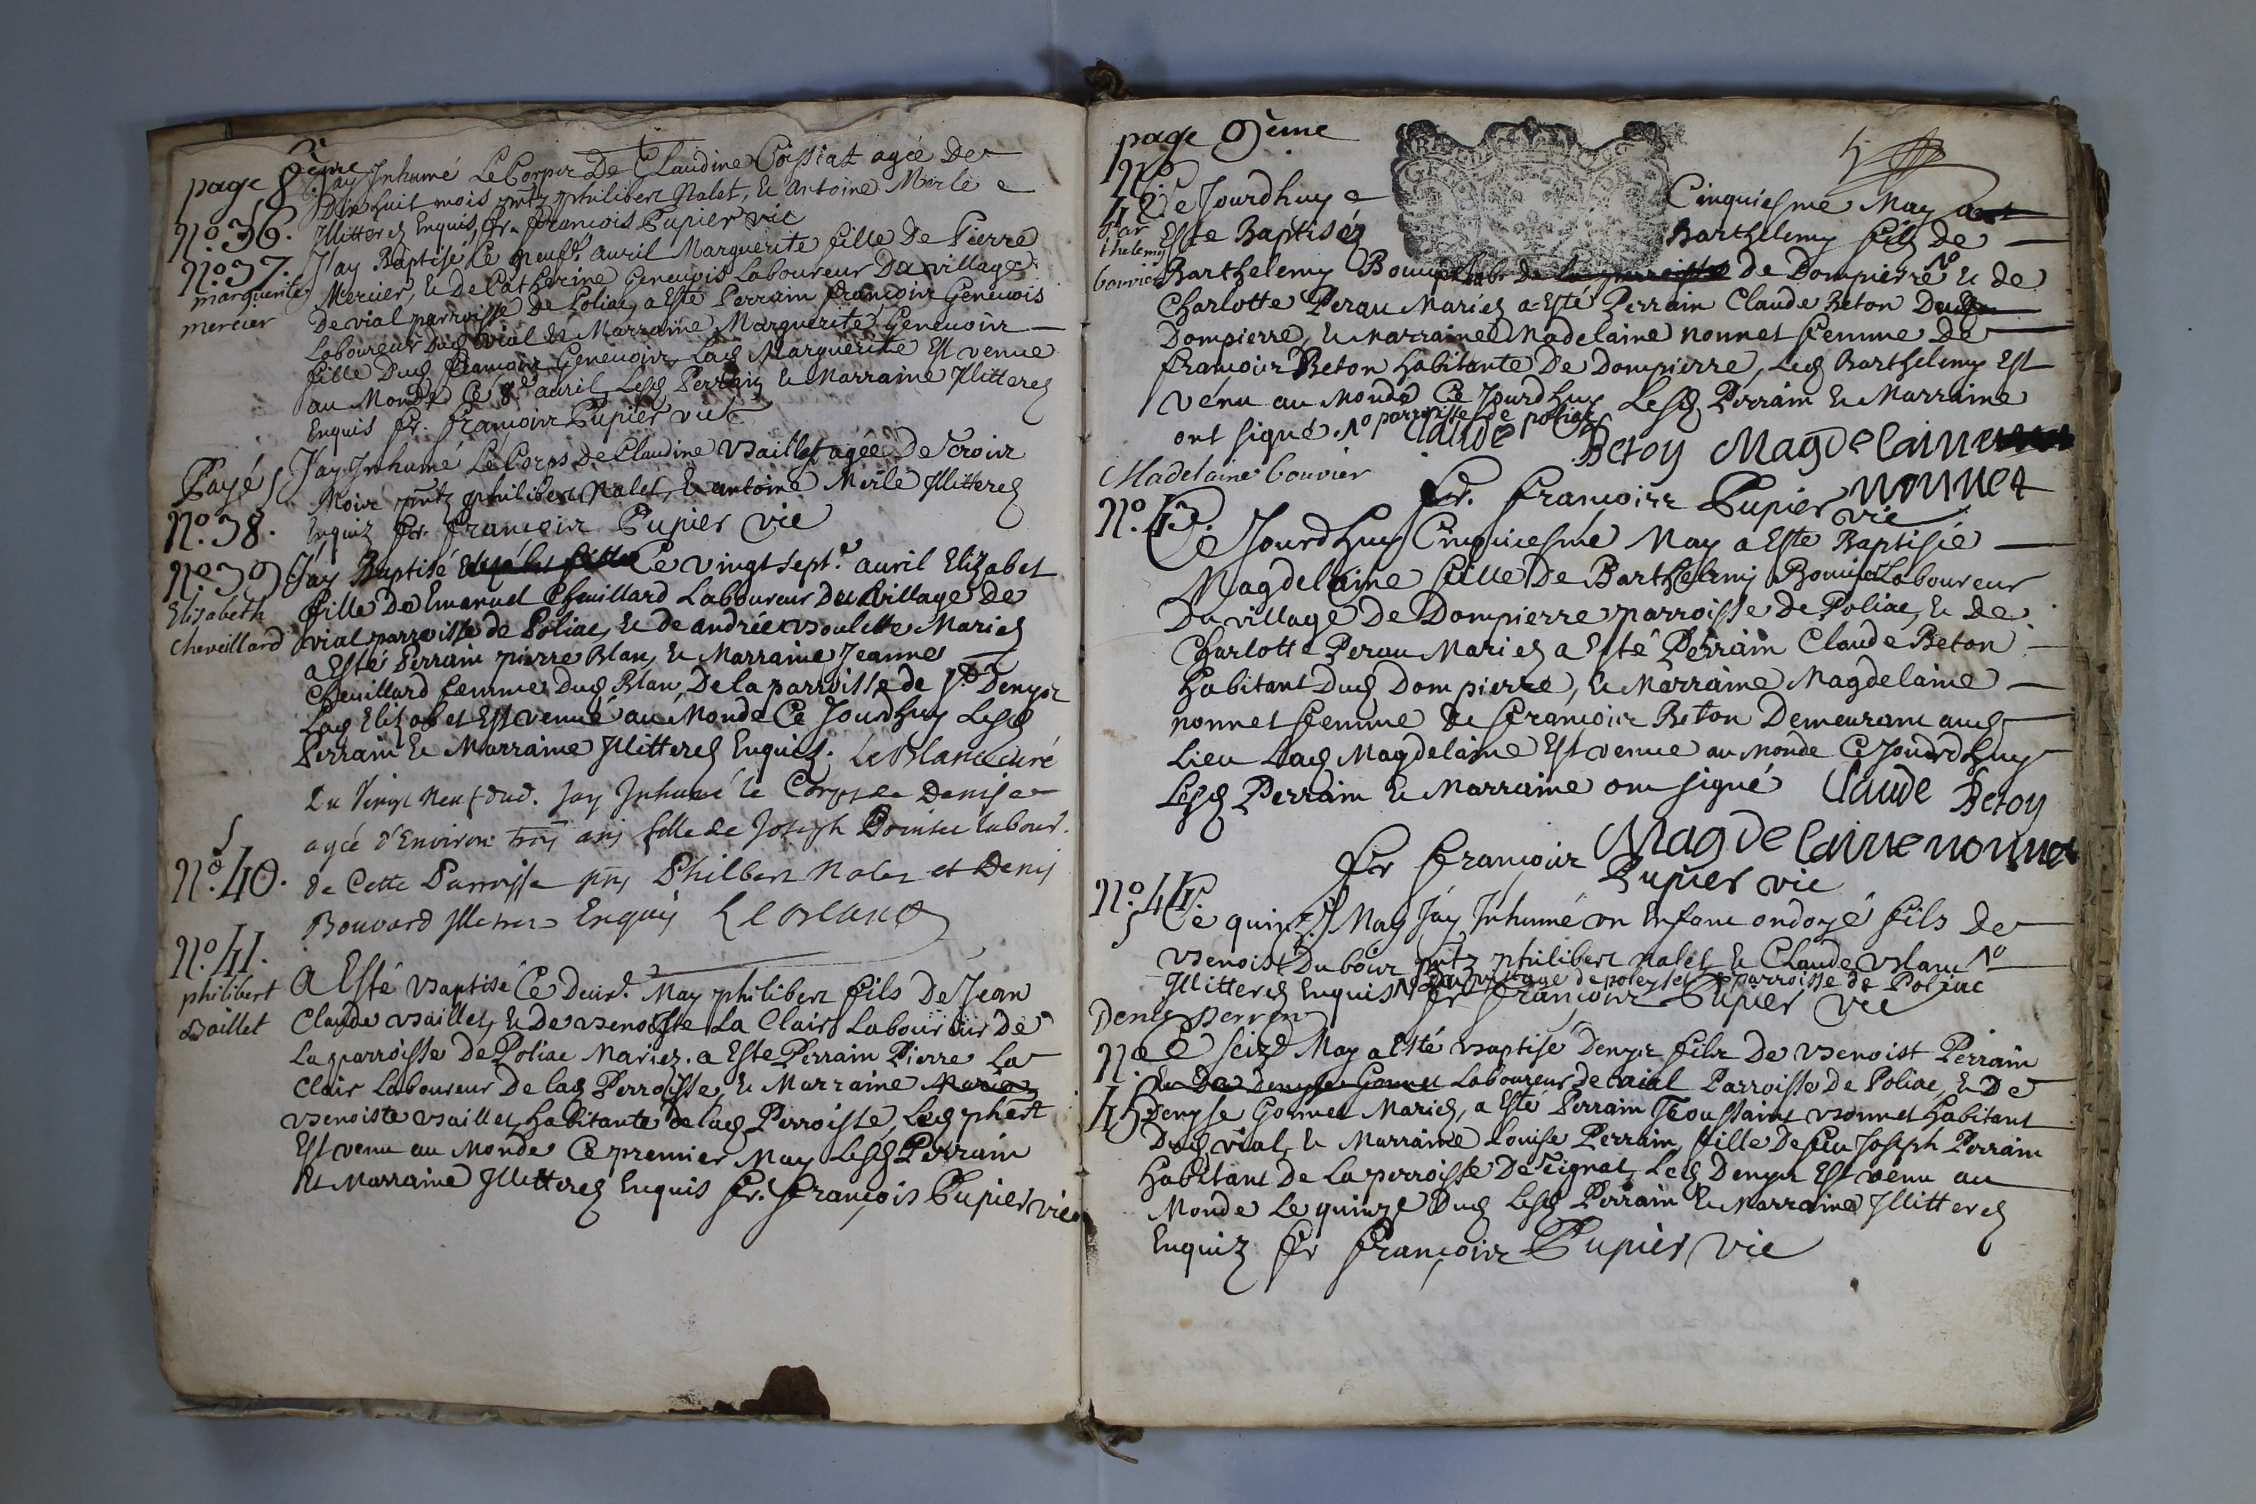 page 8eme
J'ay Inhumé Le Corps De Claudine Cossiat agée De
Dix huit mois pntz philibert Nalet, & antoine Merle
N.o 36. Illitterés Enquis, fr. françois Pupier vic
N.o 37. J'ay Baptisé Ce neufe. auril Marguerite fille De Pierre
marguerite mercier
Mercier, & de Catherine Geneuois Laboureur Du village
De vial parroisse De Poliac, a Esté Perrain françois Geneuois
Laboureur Dud vial & Marraine Marguerite Geneuoix
fille Dud françois Geneuoix, Lad Marguerite Est venue
au Monde Ce 8e auril, Lesd Perrain & Marraine Illitteres
Enquis fr. françoix Pupier vic
Payé J'ay Inhumé Le Corps De Claudine vaillet agée De Troix
Moix pntz philibert Nalet, & antoine Merle Illitteres
N.o 38. Enquiz fr. françoix Pupier vic
N.o 39 J'ay Baptisé Ce vingt sept.e auril Elizabet
Elizabeth cheveillard
fille De Emanuel Cheuillard Laboureur Du village De
vial parroisse de Poliac, & de andrée voulette Mariés
a Esté Perrain pierre Blan, & Marraine Jeanne
Cheuillard femme Dud Blan, De la parroisse de St Denyx
Lad Elizabet Est venue au Monde Ce Jourdhuy Lesd
Perrain & Marraine Illitteres Enquiz. LeBlanc curé
Du Vingt neuf dud. Jay Inhumé le Corps de Denise
agée d'Environ trois ans fille de Joseph Pointet labour.
N.o 40. de Cette Parroisse pns Philbert Nalet et Denis
Bouvard Illetres Enquis LeBlanc
N.o 41.
philibert vaillet
A Esté vaptisé Ce Deuxe. May philibert fils De Jean
Claude vaillet, & De venoiste La Clair Laboureur De
La parroisse De Poliac Mariez. a Este Perrain Pierre La
Clair Laboureur De lad Perroisse, & Marraine
venoiste vaillet, habitante De lad Perroisse, Led phert
Est venu au Monde Ce premier May Lesd Perrain
Et Marraine Illitteres Enquis fr. françois Pupier vic
page 9eme
N.o 42 Ce Jourdhuy Cinquiesme May
bar thelemy bouvier
Este Baptisez Barthelemy fils De
Barthelemy Bouuier Labr De Dompierre 1o & de
Charlotte Perau Mariés a Esté Perrain Claude Beton Dud
Dompierre, & Marraine Madelaine nonnet femme De
françoix Beton habitante De Dompierre, Led Barthelemy Est
venu au Monde Ce Jourdhuy Lesd Perrain & Marraine
ont signé. 1o parroisse de poliac
Claude Betoy Magdelaine
nonnet
fr. françoix Pupier vic
Madelaine bouvier
N.o 43. Ce Jourdhuy Cinquiesme May a Este Baptisée
Magdelaine fille De Barthelemy Bouuier Laboureur
Du village De Dompierre parroisse de Poliac, & de
Charlotte Perau Mariés a Esté Perrain Claude Beton
habitant Dud Dompierre, & Marraine Magdelaine
nonnet femme De françoix Beton Demeurant aud
Lieu Lad Magdelaine Est venue au Monde Ce Jourdhuy
Lesd Perrain & Marraine ont signé Claude Betoy
Magdelaine nonnet
fr françoix Pupier vic
N.o 44. Ce quinze May J'ay Inhumé un Enfant ondoyé fils De
venoist Duboix pntz philibert nalet & Claude vlanc 1o
Illitteres Enquis 1o Du village de poleysieu parroisse de Poliac
fr françoix Pupier vic
Denis perren
N.o 45 Ce seize May a Esté vaptisé Denyx fils De venoist Perrain
Laboureur de vial Parroisse De Poliac, & De
Denyse Gonnet Mariés, a Esté Perrain Toussaint vonnet habitant
Dud vial, & Marraine Louise Perrain, fille De feu Joseph Perrain
habitant De La perroisse De Teignat, Led Denyx Est venu au
Monde Le quinze Dud Lesd Perrain & Marraine Illitteres
Enquiz fr françoix Pupier vic